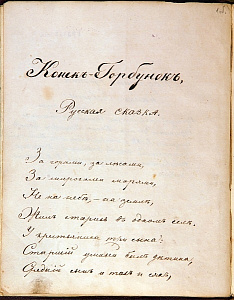 Конекъ-Горбунокъ,
Русская сказка.
За горами, за лѣсами,
За широкими морями,
Не на небѣ – на землѣ,
Жилъ старикъ въ одномъ селѣ.
У крестьянина три сына:
Старшій умный былъ дѣтина,
Средній сынъ и такъ и сякъ,